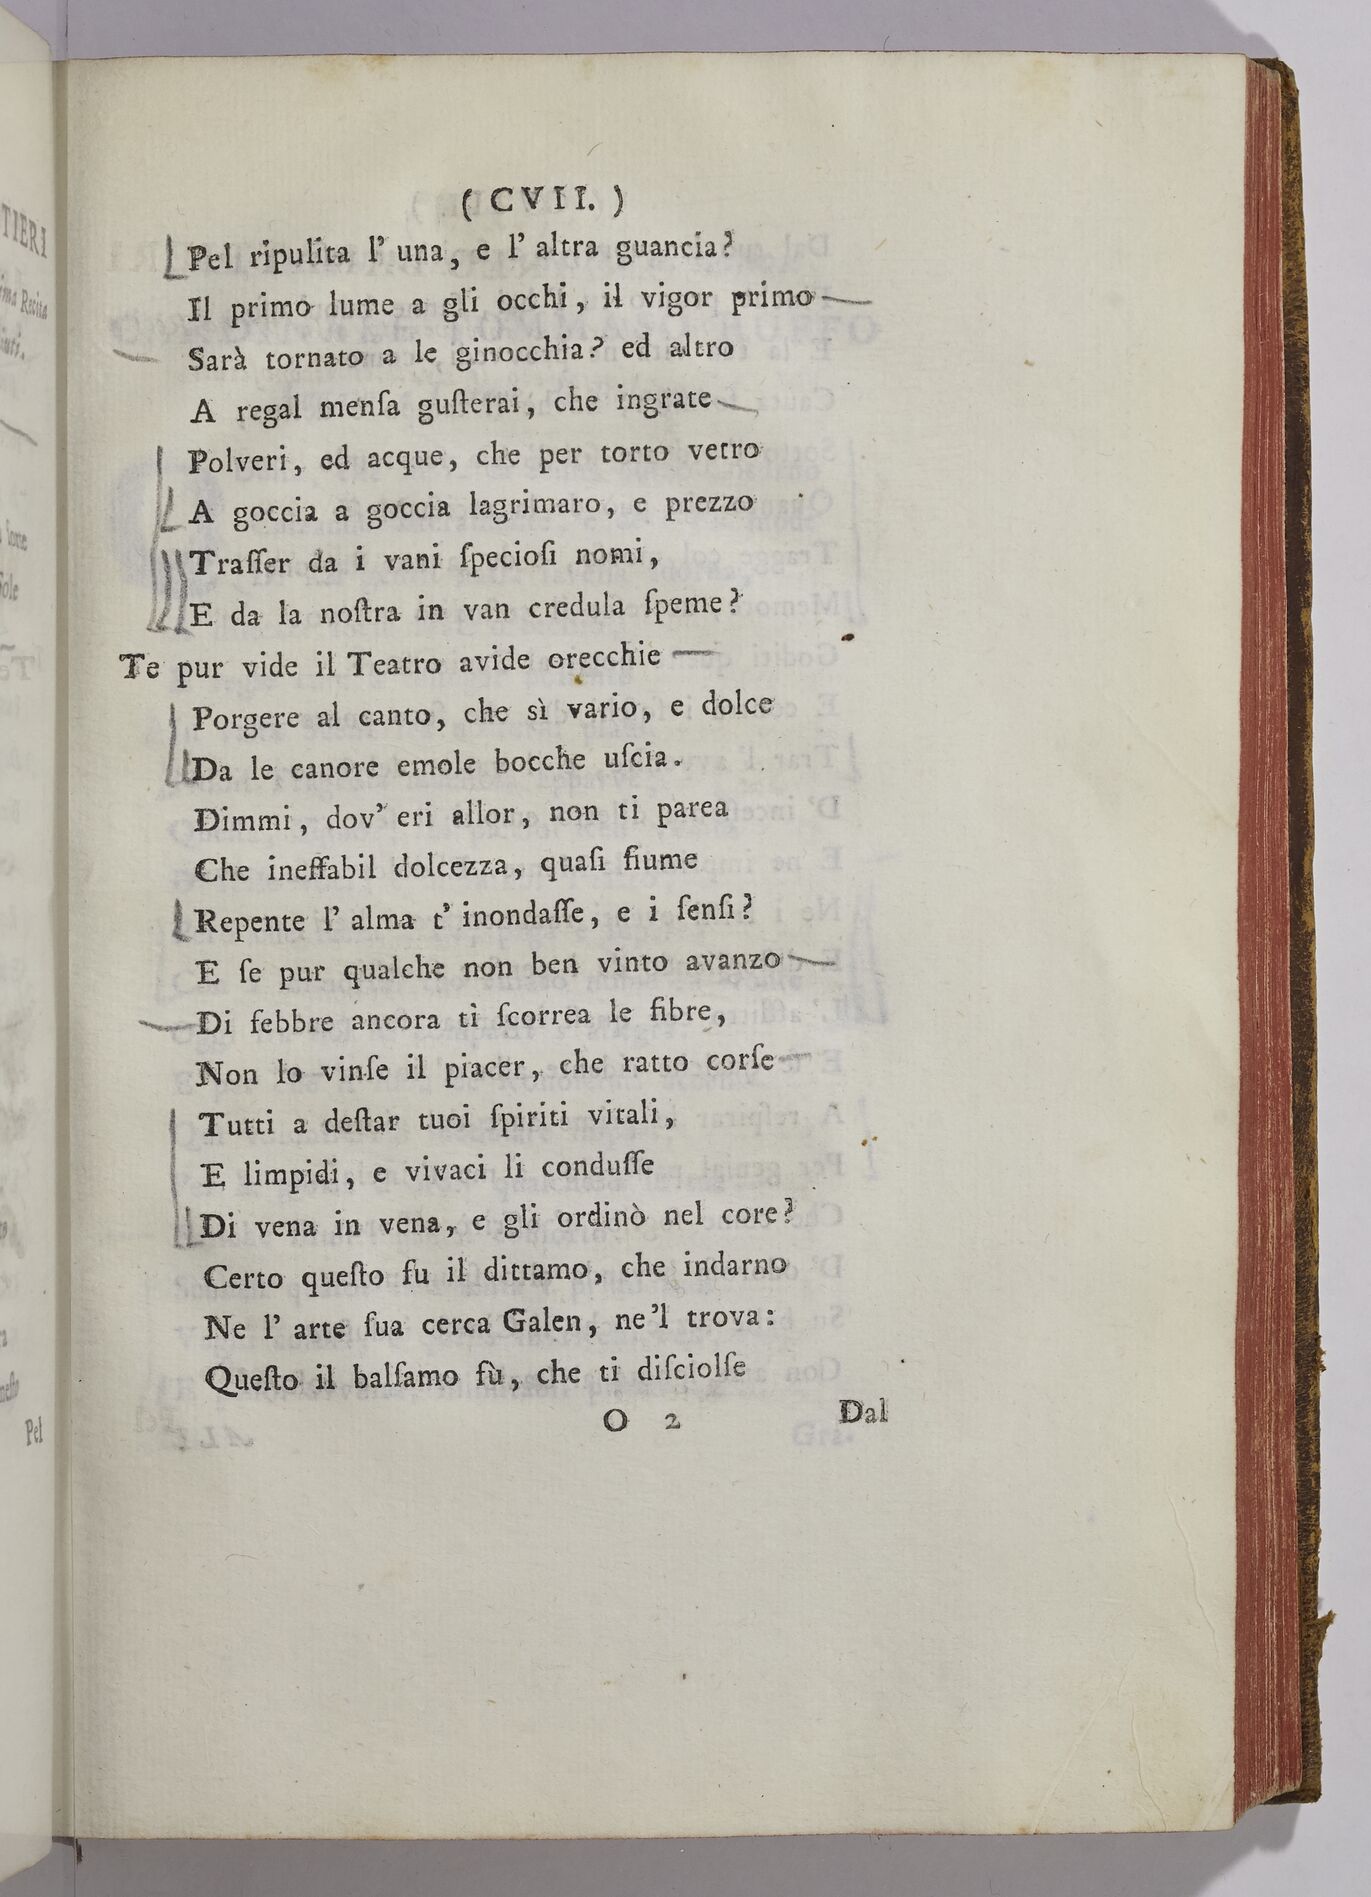 ( CVII. )
Pel ripulita l' una, e l' altra guancia?
Il primo lume a gli occhi, il vigor primo
Sarà tornato a le ginocchia? ed altro
A regal menſa guſterai, che ingrate
Polveri, ed acque, che per torto vetro
A goccia a goccia lagrimaro, e prezzo
Traſſer da i vani ſpecioſi nomi,
E da la noſtra in van credula ſpeme?
Te pur vide il Teatro avide orecchie
Porgere al canto, che sì vario, e dolce
Da le canore emole bocche uſcia.
Dimmi, dov' eri allor, non ti parea
Che ineffabil dolcezza, quaſi fiume
Repente l' alma t' inondaſſe, e i ſenſi?
E ſe pur qualche non ben vinto avanzo
Di febbre ancora ti ſcorrea le fibre,
Non lo vinſe il piacer, che ratto corſe
Tutti a deſtar tuoi ſpiriti vitali,
E limpidi, e vivaci li conduſſe
Di vena in vena, e gli ordinò nel core?
Certo queſto fu il dittamo, che indarno
Ne l' arte ſua cerca Galen, ne'l trova:
Queſto il balſamo fù, che ti diſciolſe
O 2 Dal
TIERI
Recita
Sole
Pel